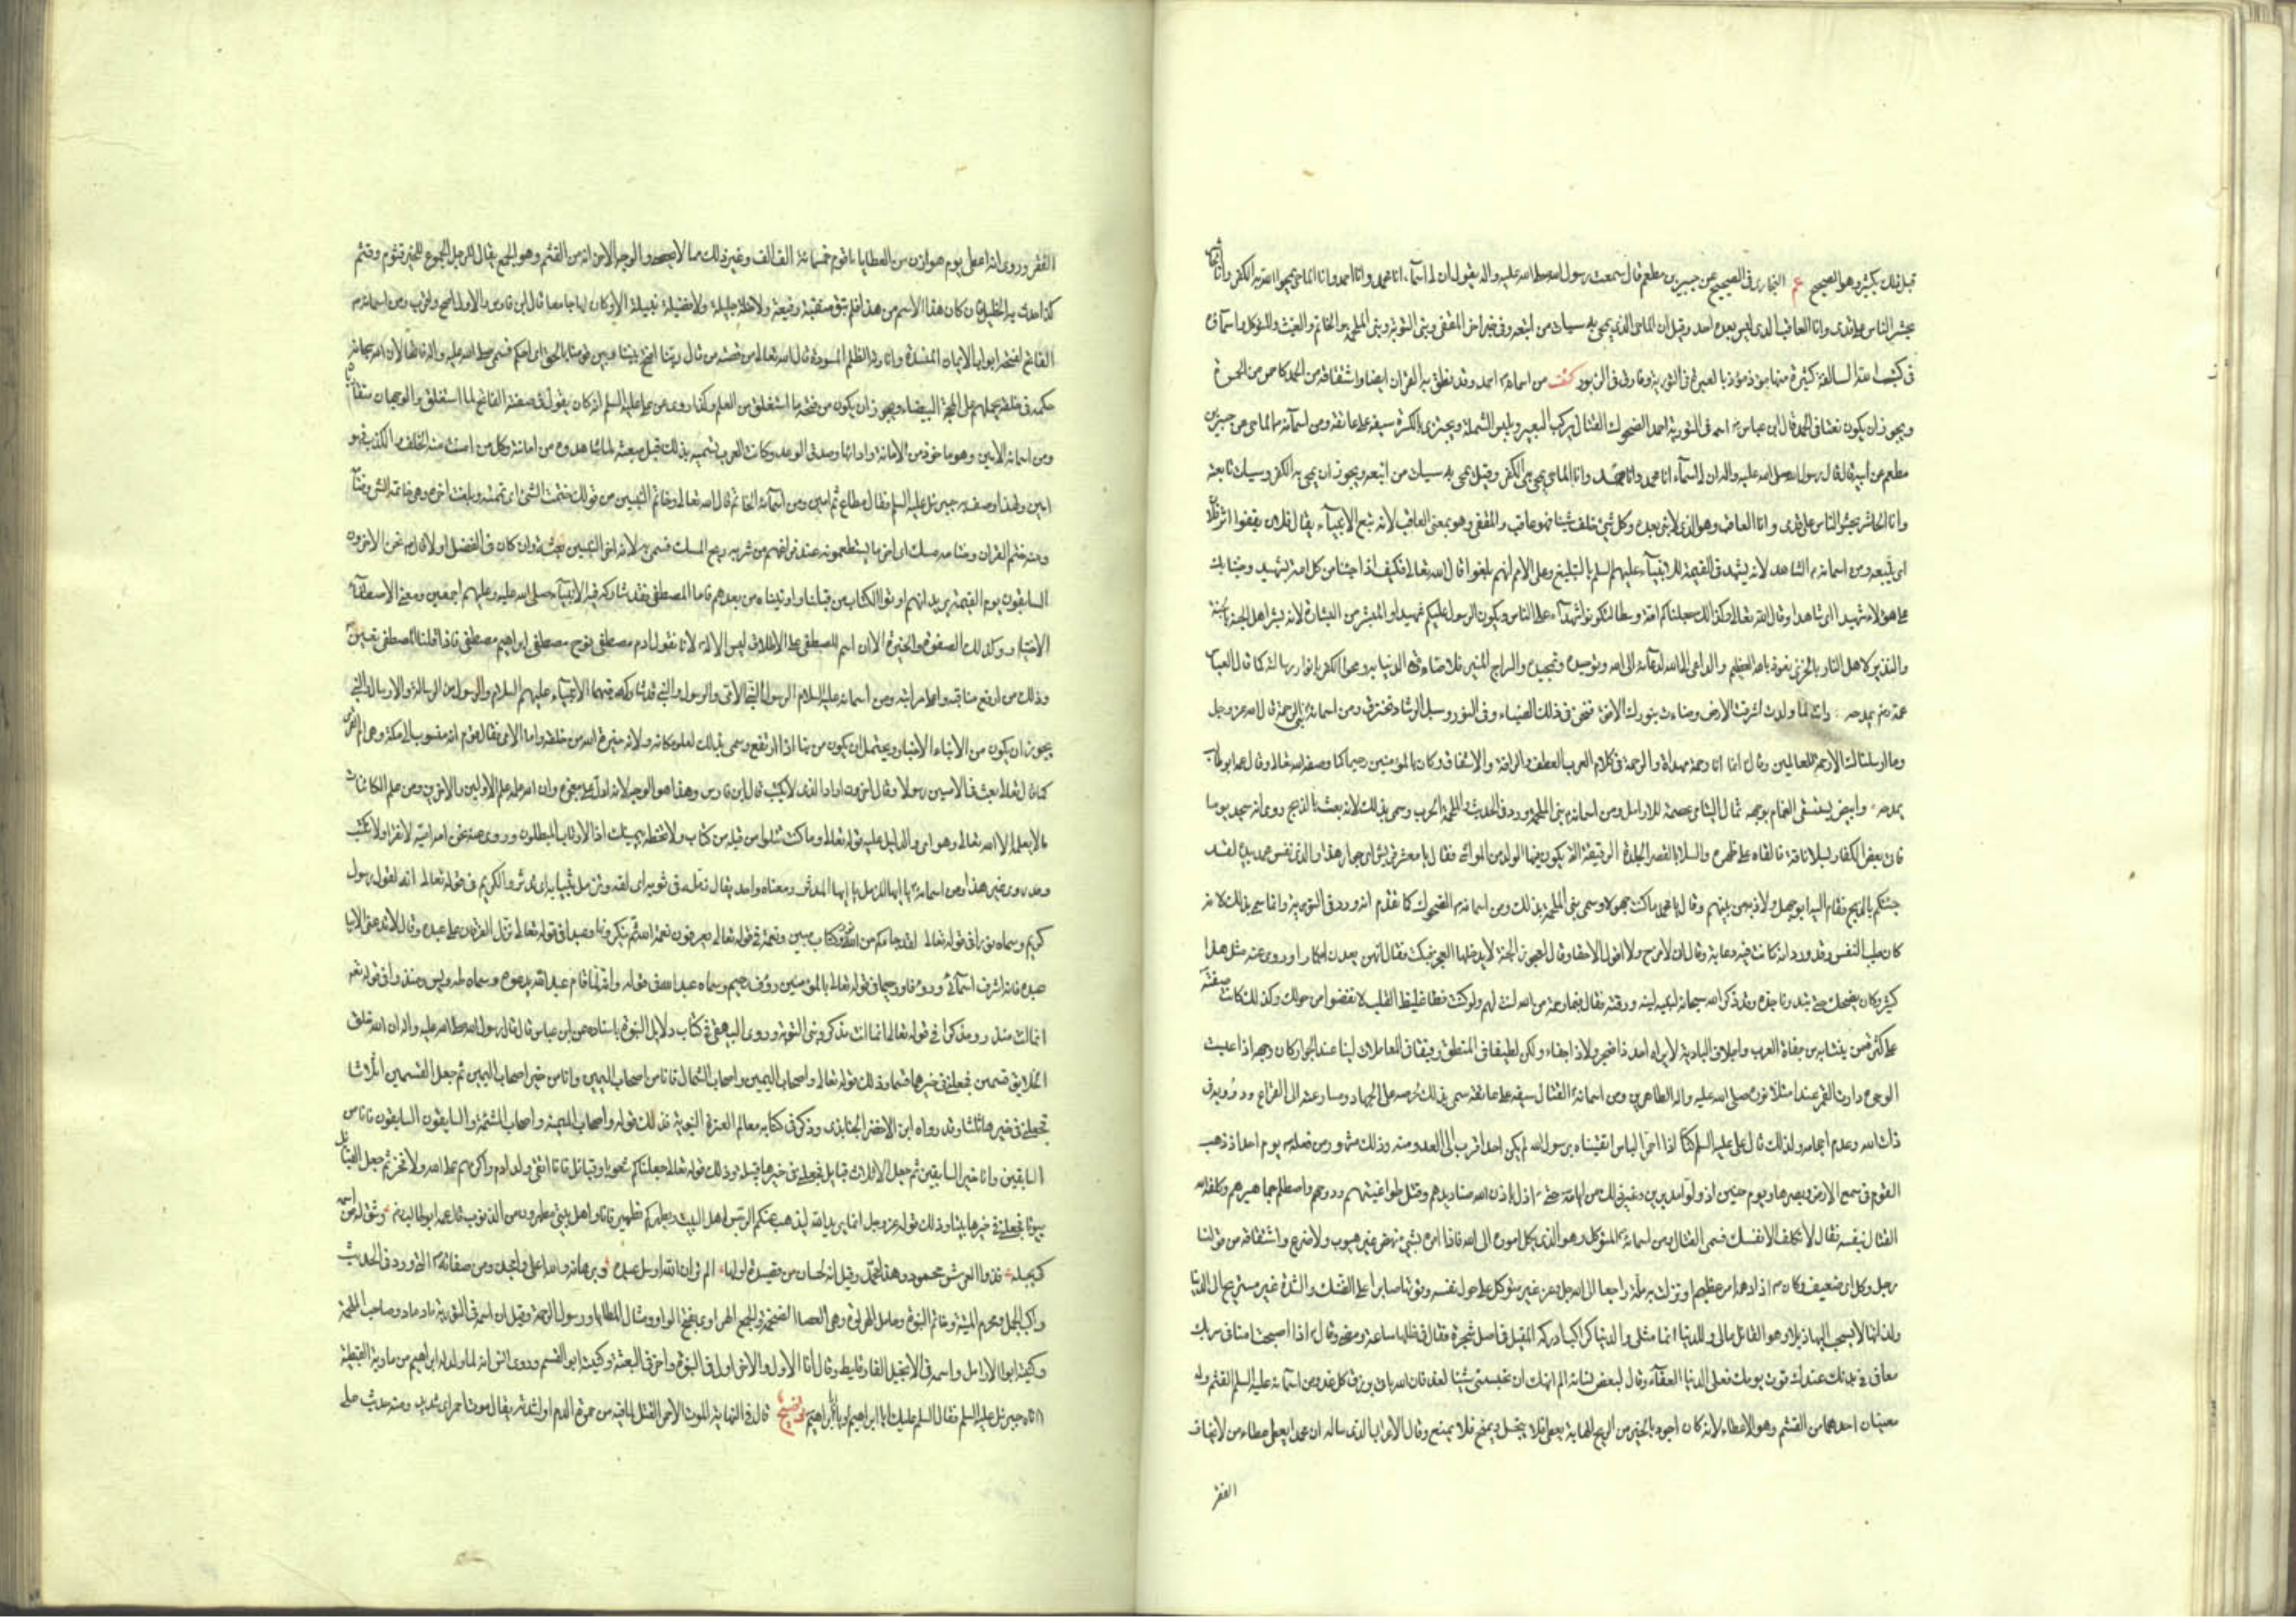 قبل ذلك بكثير وهو الصحيح عم البخاري في الصحيح عن جبير بن مطعم قال سمعت رسول الله صلى الله عليه واله يقول ان لي اسماء انا محمد وانا احمد وانا الماحي يمحو الله بي الكفر وانا الحاشر
يحشر الناس على قدمي وانا العاقب الذي ليس بعده احد وقيل ان الماحي الذي يمحى به سيئات من اتبعه وفي خبر اخر المقفي ونبي التوبة ونبي الملحمة والخاتم والغيث والمتوكل واسماؤه
في كتب الله السالفة كثيرة منها موذ موذ بالعبري في التورية وفارق في الزبور كشف من اسمائه احمد وقد نطق به القران ايضا واشتقاقه من الحمد كاحمر من الحمرة
ويجوز ان يكون نعتا في الحمد قال ابن عباس اسمه في التورية احمد الضحوك القتال يركب البعير ويلبس الشملة ويجتزي بالكسرة سيفه على عاتقه ومن اسمائه الماحي عن جبير بن
مطعم عن ابيه قال قال رسول الله صلى الله عليه واله ان لي اسماء انا محمد وانا احمد وانا الماحي يمحى بي الكفر وقيل يمحى به سيئات من اتبعه ويجوز ان يمحى به الكفر وسيئات تابعيه
وانا الحاشر يحشر الناس على قدمي وانا العاقب وهو الذي لا نبي بعده وكل شيء خلف شيئا فهو عاقب والمقفي وهو بمعنى العاقب لانه تبع الانبياء يقال فلان يقفو اثر فلان
اي يتبعه ومن اسمائه الشاهد لانه يشهد في القيمة للانبياء عليهم السلم بالتبليغ وعلى الامم انهم بلغوا قال الله تعالى فكيف اذا جئنا من كل امة بشهيد وجئنا بك
على هؤلاء شهيدا اي شاهدا وقال الله تعالى وكذلك جعلناكم امة وسطا لتكونوا شهداء على الناس ويكون الرسول عليكم شهيدا والمبشر من البشارة لانه يبشر اهل الجنة بالجنة
والنذير لاهل النار بالخزي نعوذ بالله العظيم والداعي الى الله لدعائه الى الله وتوحيده وتمجيده والسراج المنير لاضاءة الدنيا به ومحو الكفر بانوار رسالته كما قال العباس
عمه يمدحه وانت لما ولدت اشرقت الارض وضاءت بنورك الافق فنحن في ذلك الضياء وفي النور وسبل الرشاد نخترق ومن اسمائه نبي الرحمة قال الله عز وجل
وما ارسلناك الا رحمة للعالمين وقال انما انا رحمة مهداة والرحمة في كلام العرب العطف والرافة والاشفاق وكان بالمؤمنين رحيما كما وصفه الله تعالى وقال عمه ابوطالب
يمدحه وابيض يستسقى الغمام بوجهه ثمال اليتامى عصمة للارامل ومن اسمائه نبي الملحمة ورد في الحديث والملحمة الحرب وسمي بذلك لانه بعث بالذبح روي انه سجد يوما
فاتى بعض الكفار بسلا ناقة فالقاه على ظهره والسلا بالقصر الجلدة الرقيقة التي يكون فيها الولد من المواشي فقال يا معشر قريش اي جوار هذا والذي نفس محمد بيده لقد
جئتكم بالذبح فقام اليه ابو جهل ولاذ به من بينهم وقال يا محمد ما كنت جهولا وسمي نبي الملحمة بذلك ومن اسمائه الضحوك كما تقدم انه ورد في التورية وانما سمي بذلك لانه
كان طيب النفس وقد ورد انه كانت فيه دعابة وقال اني لامزح ولا اقول الا حقا وقال لعجوز الجنة لا يدخلها العجز فبكت فقال انهن يعدن ابكارا وروي عنه مثل هذا
كثير وكان يضحك حتى تبدو نواجذه وقد ذكر الله سبحانه لينه ورقته فقال فبما رحمة من الله لنت لهم ولو كنت فظا غليظ القلب لانفضوا من حولك وكذلك كانت صفته
على كثرة من ينتابه من جفاة العرب واجلاف البادية لا يراه احد ذا ضجر ولا ذا جفاء ولكن لطيفا في المنطق رفيقا في المعاملات لينا عند الجوار كان وجهه اذا عبست
الوجوه دارة القمر عند امتلاء نوره صلى الله عليه واله الطاهرين ومن اسمائه القتال سيفه على عاتقه سمي بذلك لحرصه على الجهاد ومسارعته الى القراع ودؤوبه في
ذات الله وعدم احجامه ولذلك قال علي عليه السلم كنا اذا احمر الباس اتقيناه برسول الله لم يكن احد اقرب الى العدو منه وذلك مشهور من فعله يوم احد اذ ذهب
القوم في سمع الارض وبصرها ويوم حنين اذ ولوا مدبرين وغير ذلك من ايامه حتى اذل باذن الله صناديدهم وقتل طواغيتهم ودوخهم واصطلم جماهيرهم وكلفه الله
القتال بنفسه فقال لا تكلف الا نفسك فسمي القتال ومن اسمائه المتوكل وهو الذي يكل اموره الى الله فاذا امره بشيء نهض غير هيوب ولا ضرع واشتقاقه من قولنا
رجل وكل اي ضعيف وكان اذا دهمه امر عظيم او نزلت به ملمة راجعا الى الله جل وعز غير متوكل على حول نفسه وقوتها صابرا على الضنك والشدة غير مستريح الى الدنيا
ولذاتها لا يسحب اليها ذيلا وهو القائل مالي وللدنيا انما مثلي والدنيا كراكب ادركه المقيل في اصل شجرة فقال في ظلها ساعة ومضى وقال اذا اصبحت امنا في سربك
معافى في بدنك عندك قوت يومك فعلى الدنيا العفاء وقال لبعض نسائه الم انهك ان تحبسي شيئا لغد فان الله ياتي برزق كل غد ومن اسمائه عليه السلم القثم وله
معنيان احدهما من القثم وهو الاعطاء لانه كان اجود بالخير من الريح الهابة يعطي فلا يبخل ويمنح فلا يمنع وقال الاعرابي الذي ساله ان محمدا يعطي عطاء من لا يخاف
الفقر
الفقر وروي انه اعطى يوم هوازن من العطايا ما قوم خمسمائة الف الف وغير ذلك مما لا يحصى والوجه الاخر انه من القثم وهو الجمع يقال للرجل الجموع للخير قثوم وقثم
كذا حدث به الخليل فان كان هذا الاسم من هذا فلم تبق منقبة رفيعة ولا خلة جليلة ولا فضيلة نبيلة الا وكان لها جامعا قال ابن فارس والاول اصح واقرب ومن اسمائه
الفاتح لفتحه ابواب الايمان المنسدة وانارته الظلم المسودة قال الله تعالى في قصة من قال ربنا افتح بيننا وبين قومنا بالحق اي احكم فسمي صلى الله عليه واله فاتحا لان الله سبحانه
حكمه في خلقه يحملهم على المحجة البيضاء ويجوز ان يكون من فتحه ما استغلق من العلم وكذا روي عن علي عليه السلم انه كان يقول في صفته الفاتح لما استغلق والوجهان متقاربان
ومن اسمائه الامين وهو ماخوذ من الامانة وادائها وصدق الوعد وكانت العرب تسميه بذلك قبل مبعثه لما شاهدوه من امانته وكل من امنت منه الخلف والكذب فهو
امين ولهذا وصف به جبرئيل عليه السلم فقال مطاع ثم امين ومن اسمائه الخاتم قال الله تعالى وخاتم النبيين من قولك ختمت الشيء اي تممته وبلغت اخره وهي خاتمة الشيء وختامه
ومنه ختم القران وختامه مسك اي اخر ما يستطعمونه عند فراغهم من شربه ريح المسك فسمي به لانه اخر النبيين بعثة وان كان في الفضل اولا قال نحن الاخرون
السابقون يوم القيمة بيد انهم اوتوا الكتاب من قبلنا واوتيناه من بعدهم فاما المصطفى فقد شاركه فيه الانبياء صلى الله عليه وعليهم اجمعين ومعنى الاصطفاء
الاختيار وكذلك الصفوة والخيرة الا ان اسم المصطفى على الاطلاق ليس الا له لانا نقول ادم مصطفى نوح مصطفى ابراهيم مصطفى فاذا قلنا المصطفى تعين
وذلك من ارفع مناقبه واعلى مراتبه ومن اسمائه عليه السلام الرسول النبي الامي والرسول والنبي قد شاركه فيهما الانبياء عليهم السلام والرسول من الرسالة والارسال والنبي
يجوز ان يكون من الانباء الاخبار ويحتمل ان يكون من نبا اذا ارتفع وسمي بذلك لعلو مكانه ولانه خيرة الله من خلقه واما الامي فقال قوم انه منسوب الى مكة وهي ام القرى
كما قال تعالى بعث في الاميين رسولا وقال اخرون اراد الذي لا يكتب قال ابن فارس وهذا هو الوجه لانه ادل على معجزه وان الله علمه علم الاولين والاخرين ومن علم الكائنات
ما لا يعلمه الا الله تعالى وهو امي والدليل عليه قوله تعالى وما كنت تتلو من قبله من كتاب ولا تخطه بيمينك اذا لارتاب المبطلون وروي عنه نحن امة امية لا نقرا ولا نكتب
وقد روي غير هذا ومن اسمائه يا ايها المزمل يا ايها المدثر ومعناه واحد يقال زمله في ثوبه اي لفه وتزمل بثيابه اي تدثر والكريم في قوله تعالى انه لقول رسول
كريم وسماه نورا في قوله تعالى لقد جاءكم من الله نور وكتاب مبين ونعمة في قوله تعالى يعرفون نعمة الله ثم ينكرونها وعبدا في قوله تعالى نزل الفرقان على عبده وقال لا تدعني الا بيا
عبده فانه اشرف اسمائي ورءوفا ورحيما في قوله تعالى بالمؤمنين رؤف رحيم وسماه عبد الله في قوله وانه لما قام عبد الله يدعوه وسماه طه ويس ومنذرا في قوله تعالى
انما انت منذر ومذكرا في قوله تعالى انما انت مذكر ونبي التوبة وروى البيهقي في كتاب دلايل النبوة باسناده عن ابن عباس قال قال رسول الله صلى الله عليه واله ان الله خلق
الخلايق قسمين فجعلني في خيرهما قسما وذلك قوله تعالى واصحاب اليمين واصحاب الشمال فانا من اصحاب اليمين وانا من خير اصحاب اليمين ثم جعل القسمين اثلاثا
فجعلني في خيرها ثلثا وقد رواه ابن الاخضر الجنابذي وذكر في كتابه معالم العترة النبوية فذلك قوله واصحاب الميمنة واصحاب المشئمة والسابقون السابقون فانا من
السابقين وانا خير السابقين ثم جعل الاثلاث قبايل فجعلني في خيرها قبيلة وذلك قوله تعالى وجعلناكم شعوبا وقبائل فانا اتقى ولد ادم واكرمهم على الله ولا فخر ثم جعل القبائل
بيوتا فجعلني في خيرها بيتا وذلك قوله عز وجل انما يريد الله ليذهب عنكم الرجس اهل البيت ويطهركم تطهيرا فانا واهل بيتي مطهرون من الذنوب قال عمه ابو طالب وشق له من اسمه
كي يجله فذوا العرش محمود وهذا محمد وقيل انه لحسان من قصيدة اولها الم تر ان الله ارسل عبده وبرهانه والله اعلى وامجد ومن صفاته التي ورد في الحديث
راكب الجمل ومحرم الميتة وخاتم النبوة وحامل الهراوة وهي العصا الضخمة والجمع الهراوى بفتح الواو ومثال المطايا ورسول الرحمة وقيل ان اسمه في التورية ماد ماد وصاحب الملحمة
وكنيته ابو الارامل واسمه في الانجيل الفارقليط وقال انا الاول والاخر اول في النبوة واخر في البعثة وكنيته ابو القسم وروى انس انه لما ولد له ابراهيم من مارية القبطية
اتاه جبرئيل عليه السلم فقال السلم عليك ابا ابراهيم او يا ابا ابراهيم توضيح قال في النهاية الموت الاحمر القتل لما فيه من حمرة الدم او لشدته يقال موت احمر اي شديد ومنه حديث علي